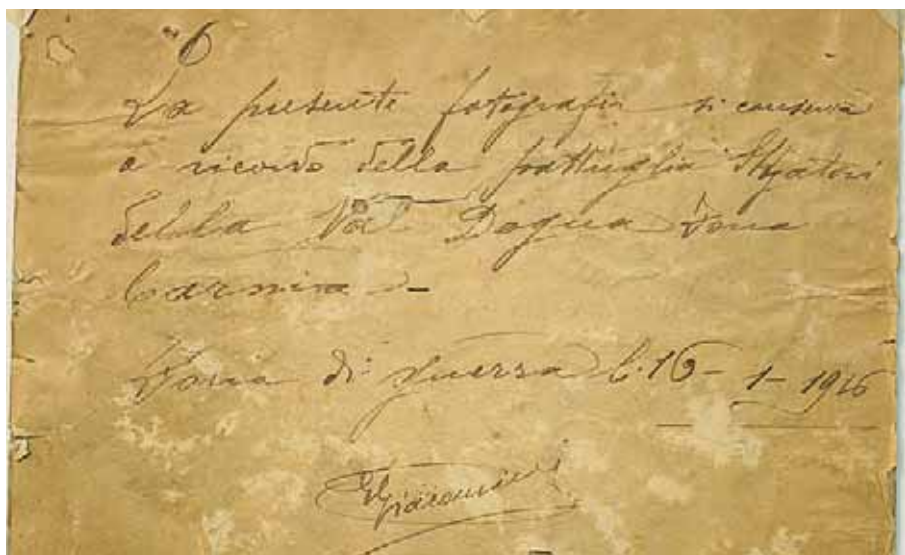 6
La presente fotografia si conserva
a ricordo della pattuglia Skjatori
della Val Dogna Zona
Carnica
Zona di guerra 6.16- 1- 1916
Giacomini